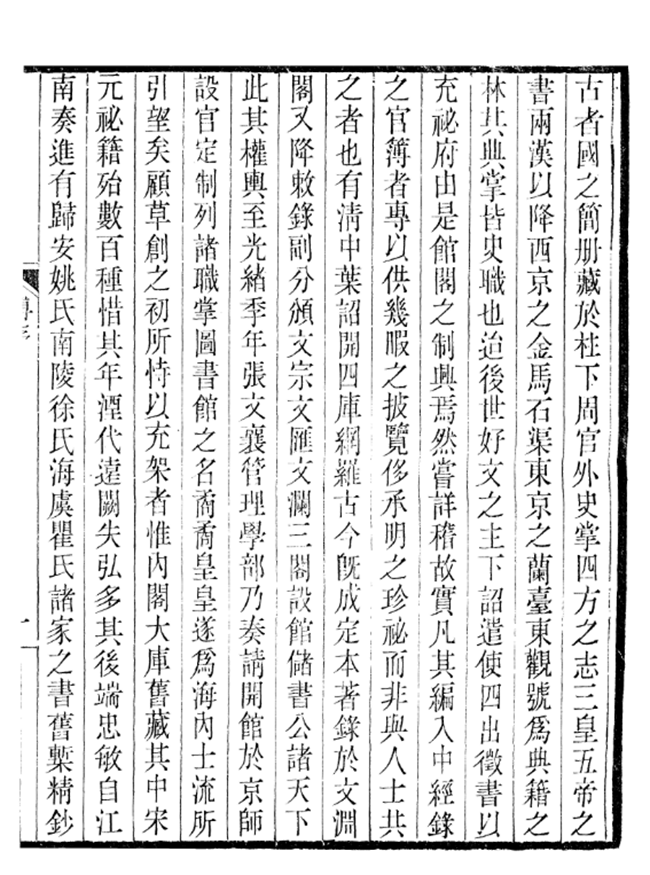 古者國之簡册藏於柱下周官外史掌四方之志三皇五帝之
書兩漢以降西京之金馬石渠東京之蘭臺東觀號爲典籍之
林其典掌皆史職也迨後世好文之主下詔遣使四出徵書以
充祕府由是館閣之制興焉然嘗詳稽故實凡其編入中經錄
之官簿者專以供幾暇之披覽侈承明之珍祕而非與人士共
之者也有淸中葉詔開四庫網羅古今旣成定本著錄於文淵
閣又降敕錄副分頒文宗文匯文瀾三閣設館儲書公諸天下
此其權輿至光緖季年張文襄管理學部乃奏請開館於京師
設官定制列諸職掌圖書館之名矞矞皇皇遂爲海內士流所
引望矣顧草創之初所恃以充架者惟內閣大庫舊藏其中宋
元祕籍殆數百種惜其年湮代遠闕失弘多其後端忠敏自江
南奏進有歸安姚氏南陵徐氏海虞瞿氏諸家之書舊槧精鈔
一